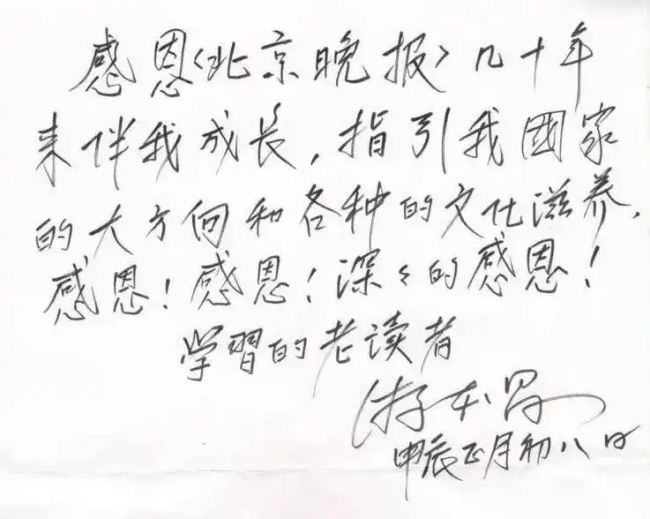 感恩《北京晚报》几十年
来伴我成长，指引我國家
的大方向和各种的文化滋养，
感恩！感恩！深々的感恩！
学習的老读者
游本昌
申辰正月初八日